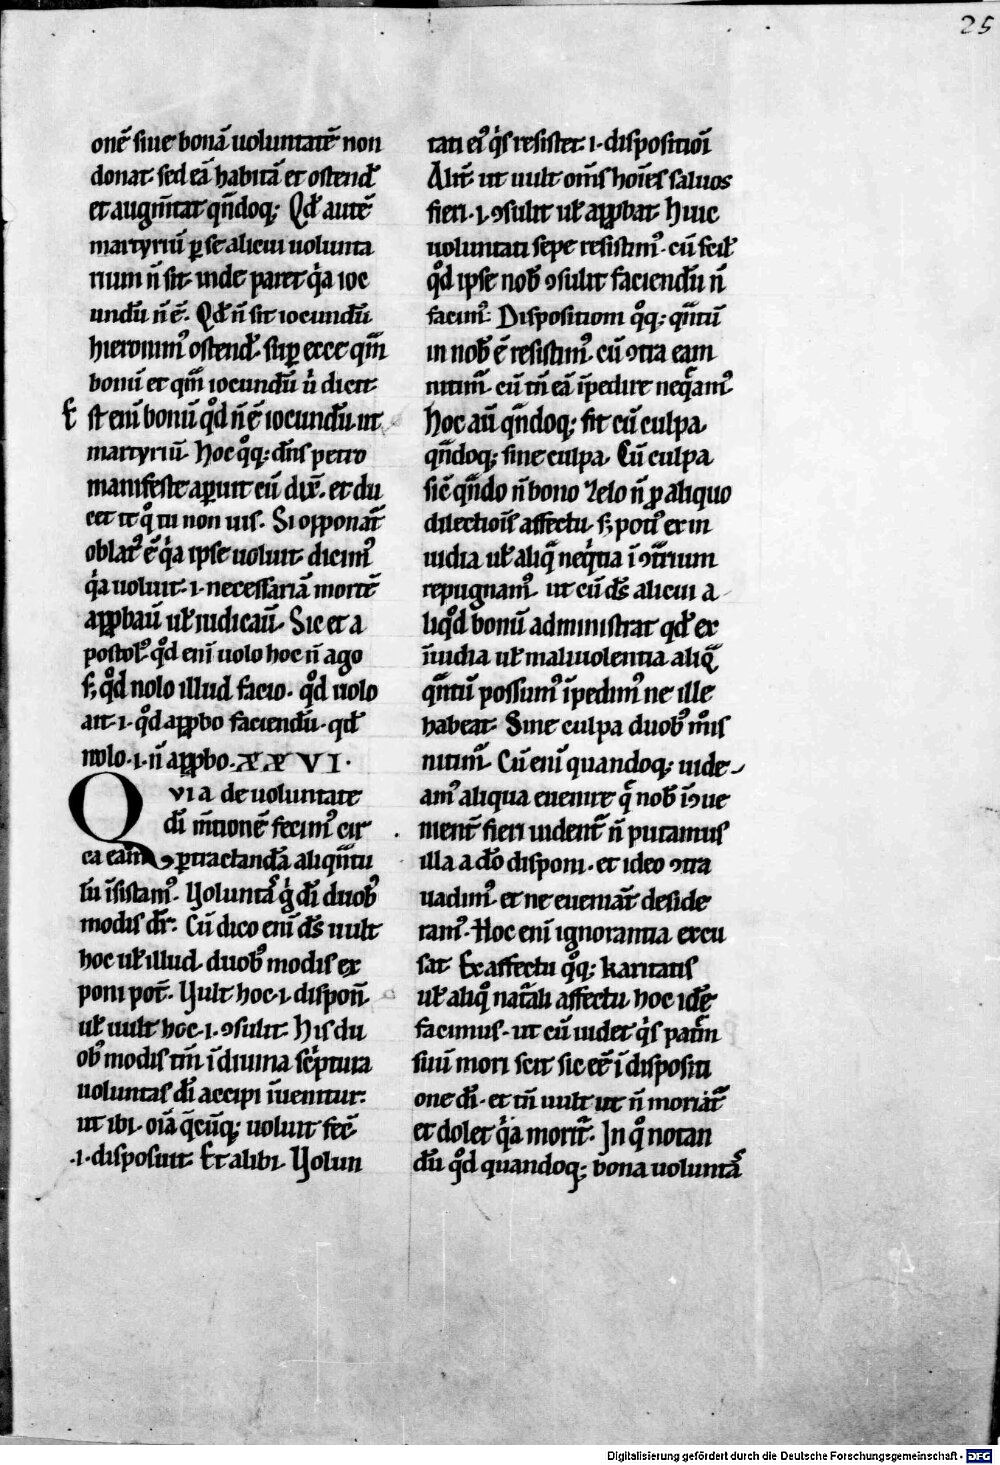 25
onē siue bonā uoluntatē non
donat. sed eā habitā et ostend̄
et augm̄tat qn̄doq;. Qd̄ autē
martyriū ꝑ se alicui uolunta
rium n̄ sit. inde patet qͥa ioc
undū n̄ ē. Qd̄ n̄ sit iocundū
hieronimꝰ ostend̄. sup ecce qm̄
bonū et qm̄ iocundū ū dicit.
Est eni bonū qͦd n̄ ē iocundū. ut
martyriū. Hoc qͦq; dn̄s petro
manifeste aꝑuit cū dix̄. et du
cet te qͦ tu non uis. Si opponat̄
oblatꝰ ē qͥa ipse uoluit. dicimꝰ
qͥa uoluit. i. necessariā mortē
aꝓbaū ul̄ iudicaū. Sic et a
postolꝰ. qͦd eni uolo hoc n̄ ago
s; qͦd nolo illud facio. qͦd uolo
ait. i. qͦd aꝓbo faciendū. qd̄
nolo. i. n̄ aꝓbo. XXVI.
Qvia de uoluntate
dī m̄tionē fecimꝰ cir
ca eam ꝑtractandā aliqn̄tu
lū īsistamꝰ. Voluntas gͥ dī duobꝰ
modis dr̄. Cū dico eni dš uult
hoc ul̄ illud. duobꝰ modis ex
poni pot̄. Vult hoc. i. dispon̄.
ul̄ uult hoc. i. ꝯsulit. His du
obꝰ modis tm̄ ī diuina scͥptura
uoluntas dī accipi īuenitur.
ut ibi. oīa q̄cūq; uoluit fec̄
.i. disposuit. Et alibi. Volun
tati eiꝰ qͥs resistet. i. dispositioī
Alit̄. ut uult om̄s hoīes saluos
fieri. i. ꝯsulit ul̄ aꝓbat. Huic
uoluntati sepe resistimꝰ. cū scil̄
qͦd ipse nob̄ ꝯsulit faciendū n̄
facimꝰ. Dispositioni qͦq; qn̄tū
in nob̄ ē resistimꝰ. cū ꝯtra eam
nitim̄. cū tn̄ eā īpedire neqͣamꝰ
Hoc aū qn̄doq; fit cū culpa.
qn̄doq; sine culpa. Cū culpa
sic̄ qn̄do n̄ bono zelo n̄ ꝓ aliquo
dilectiois affectu. s; potiꝰ ex in
uidia ul̄ aliqͣ neqͥtia ī ꝯtͣrium
repugnamꝰ. ut cū dš alicui a
liqͦd bonū administrat qd̄ ex
īuidia ul̄ maliuolentia aliqͣ
qn̄tū possumꝰ īpedimꝰ ne ille
habeat. Sine culpa duobꝰ m̊is
nitim̄. Cū eni quandoq; uide
amꝰ aliqua euenire q̄ nob̄ īꝯue
nient̄ fieri uident̄ n̄ putamus
illa a dō disponi. et ideo ꝯtra
uadimꝰ. et ne eueniāt deside
ramꝰ. Hoc eni ignorantia excu
sat. Ex affectu qͦq; karitatis
ul̄ aliqͦ natͣali affectu. hoc idē
facimus. ut cū uidet qͥs patrē
suū mori scit sic eē ī dispositi
one dī. et tn̄ uult ut n̄ moriat̄
et dolet qͥa morit̄. In qͦ notan
dū qͦd quandoq; bona uoluntas
Digitalisierung gefördert durch die Deutsche Forschungsgemeinschaft - DFG